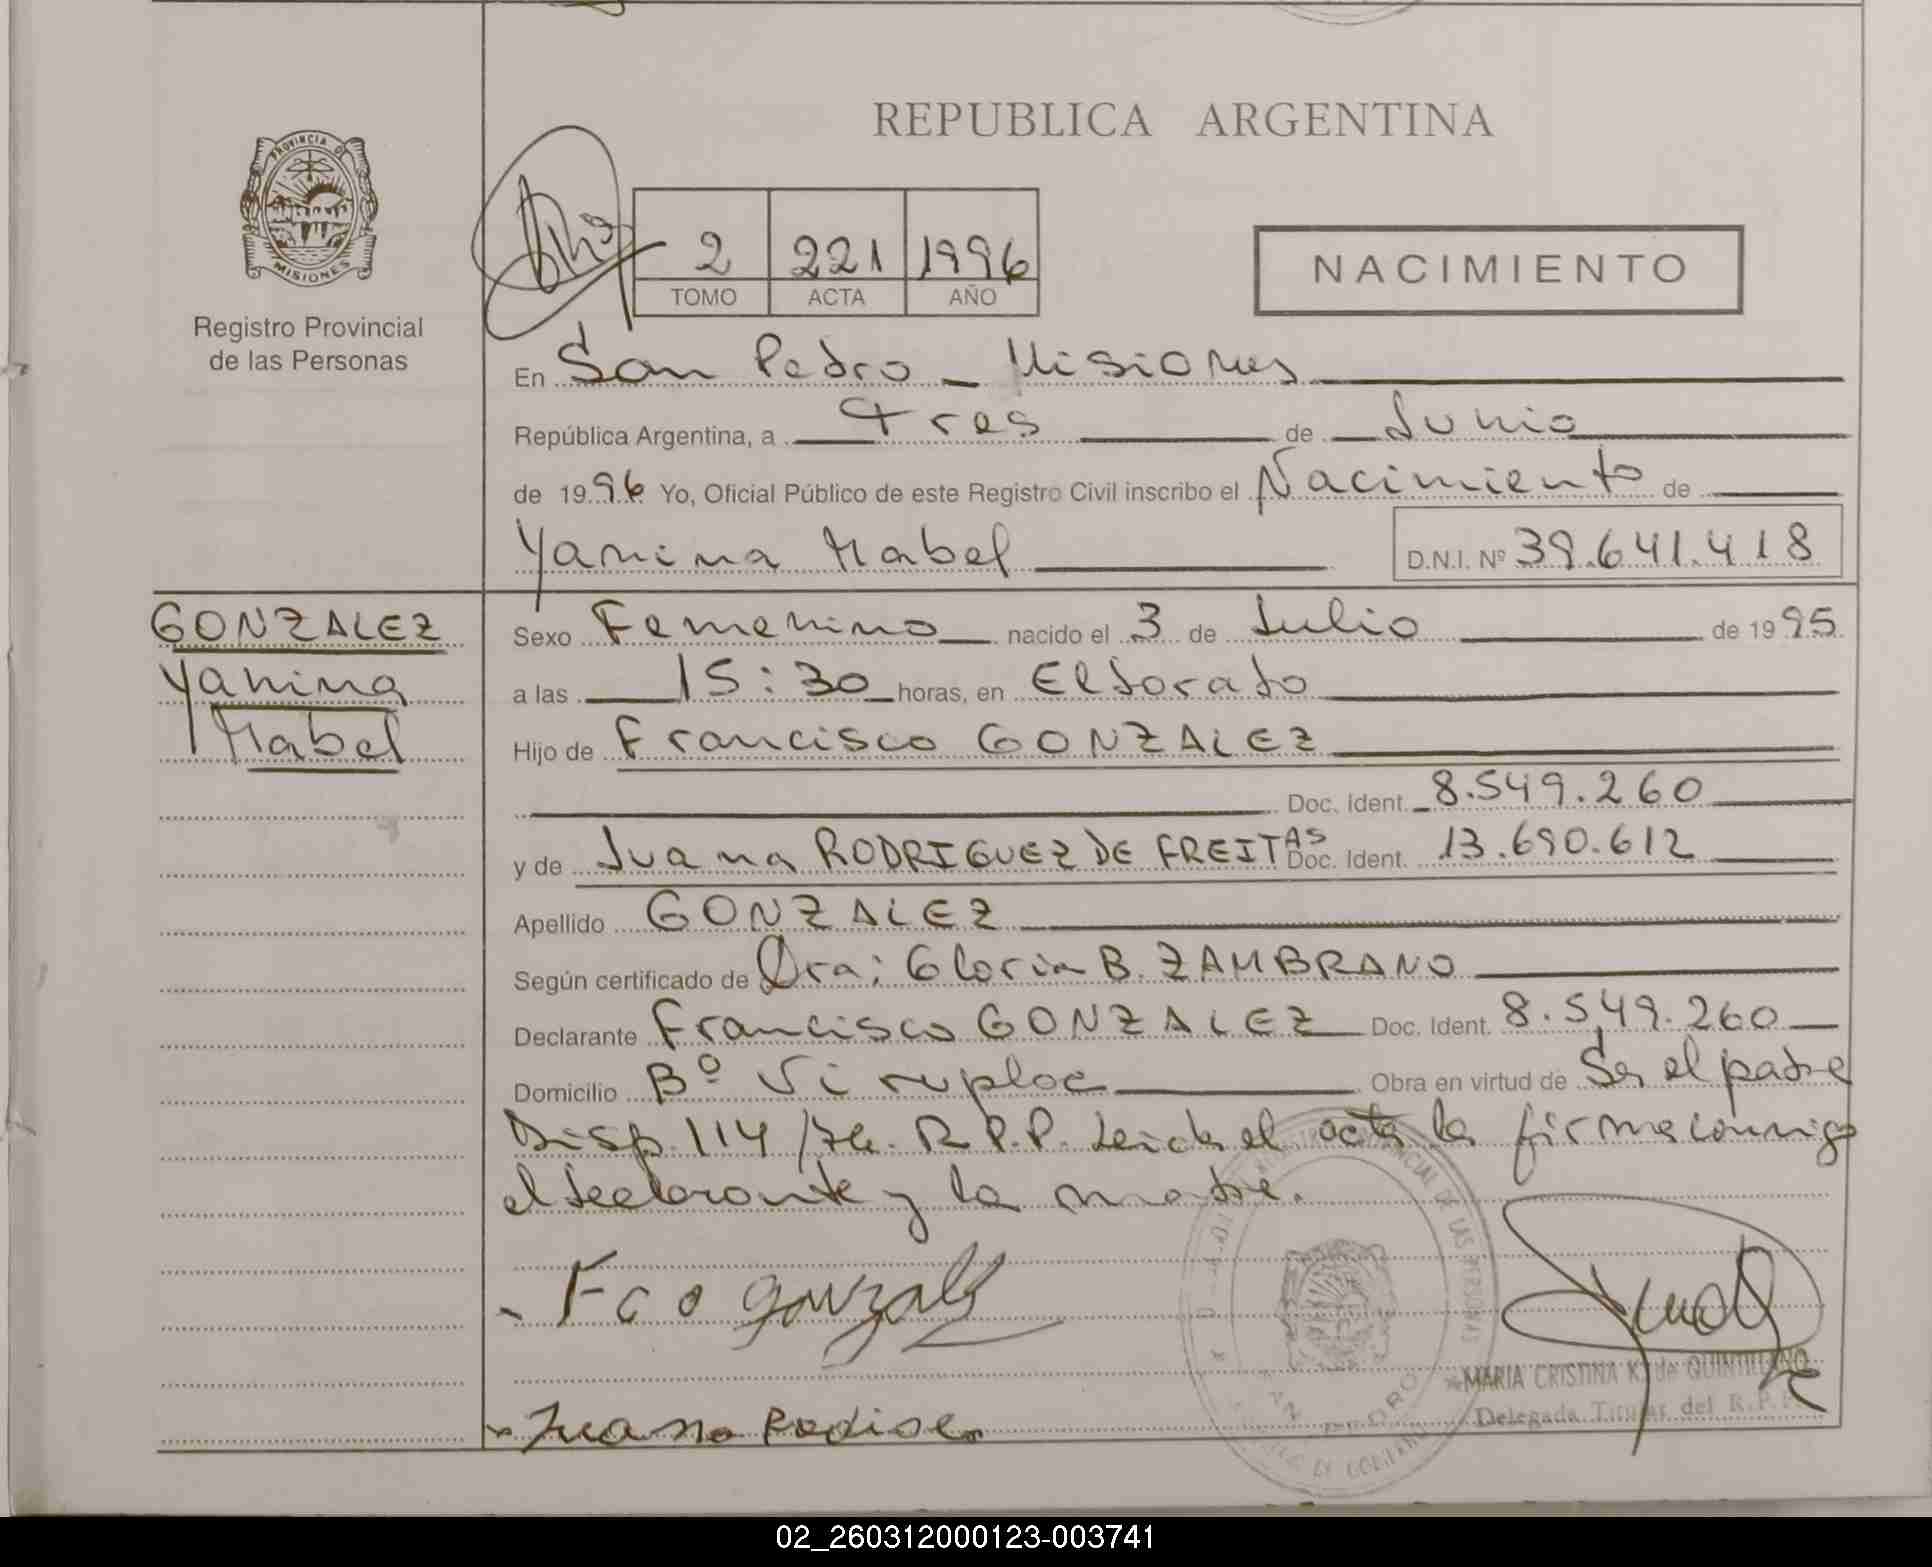 REPUBLICA ARGENTINA
PROVINCIA DE
MISIONES
Registro Provincial
de las Personas
2 221 1996
TOMO ACTA AÑO
NACIMIENTO
En San Pedro _ Misiones
República Argentina, a tres de Junio
de 1996 Yo, Oficial Público de este Registro Civil inscribo el Nacimiento de
Yanina Mabel D.N.I. Nº 39.641.418
GONZALEZ
Yanina
Mabel
Sexo Femenino nacido el 3 de Julio de 1995
a las 15:30 horas, en Eldorado
Hijo de Francisco GONZALEZ
Doc. Ident. 8.549.260
y de Juana RODRIGUEZ DE FREITAS Doc. Ident. 13.690.612
Apellido GONZALEZ
Según certificado de Dra: Gloria B. ZAMBRANO
Declarante Francisco GONZALEZ Doc. Ident. 8.549.260
Domicilio Bº Obra en virtud de Ser el padre
Disp. 114/74. R.P.P. Leida el acta la firma conmigo
el declarante y la madre.
Fco Gonzalez
MARIA CRISTINA K. de QUINTILIANO
Delegada Titular del R.P.P.
Juana
SAN PEDRO
02_260312000123-003741